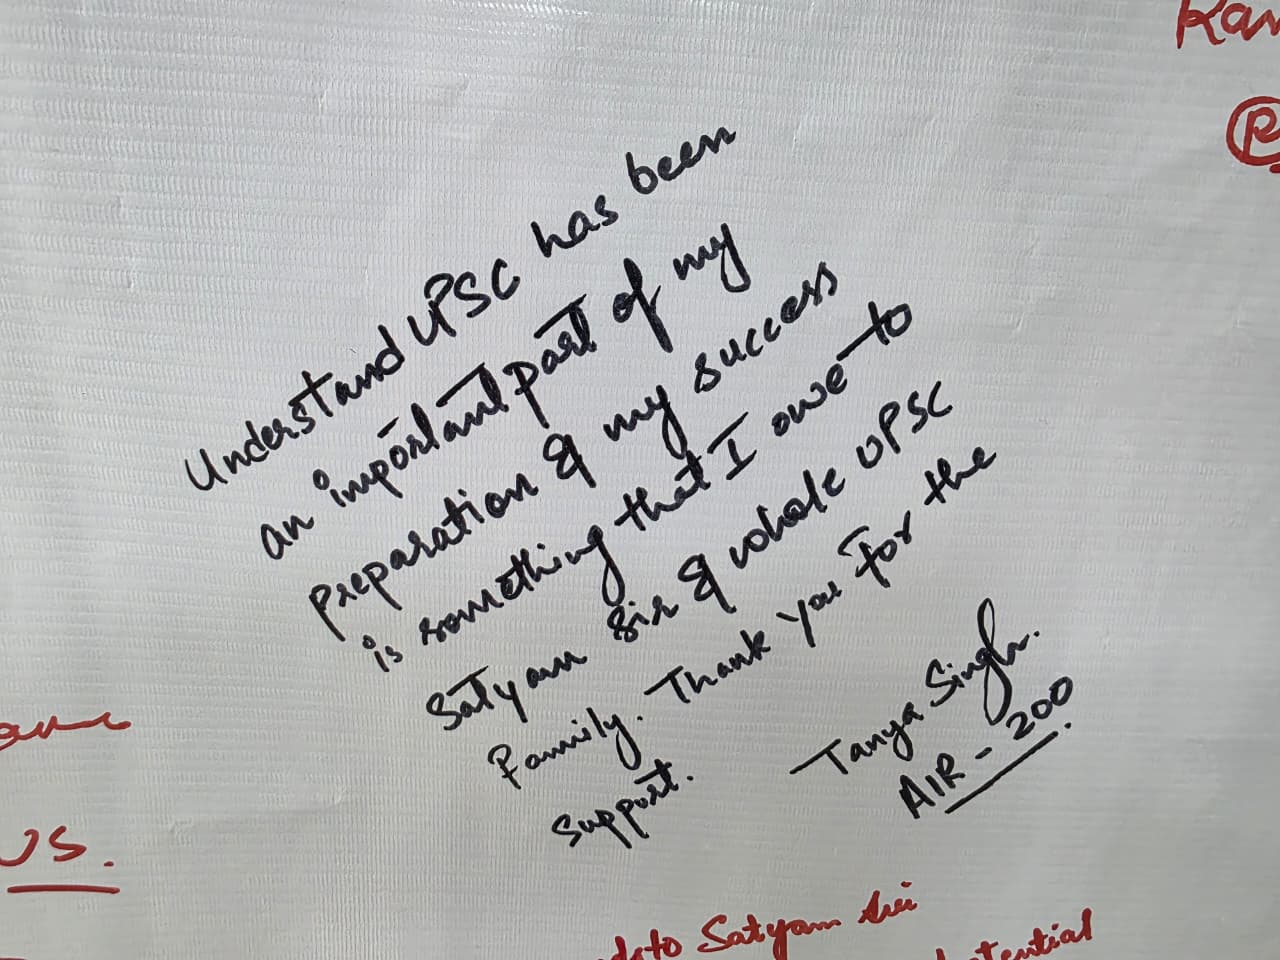 Understand UPSC has been
an important part of my
preparation & my success
is something that I owe to
Satyam Sir & whole UPSC
Family. Thank you for the
support.
Tanya Singh.
AIR - 200
US.
to Satyam